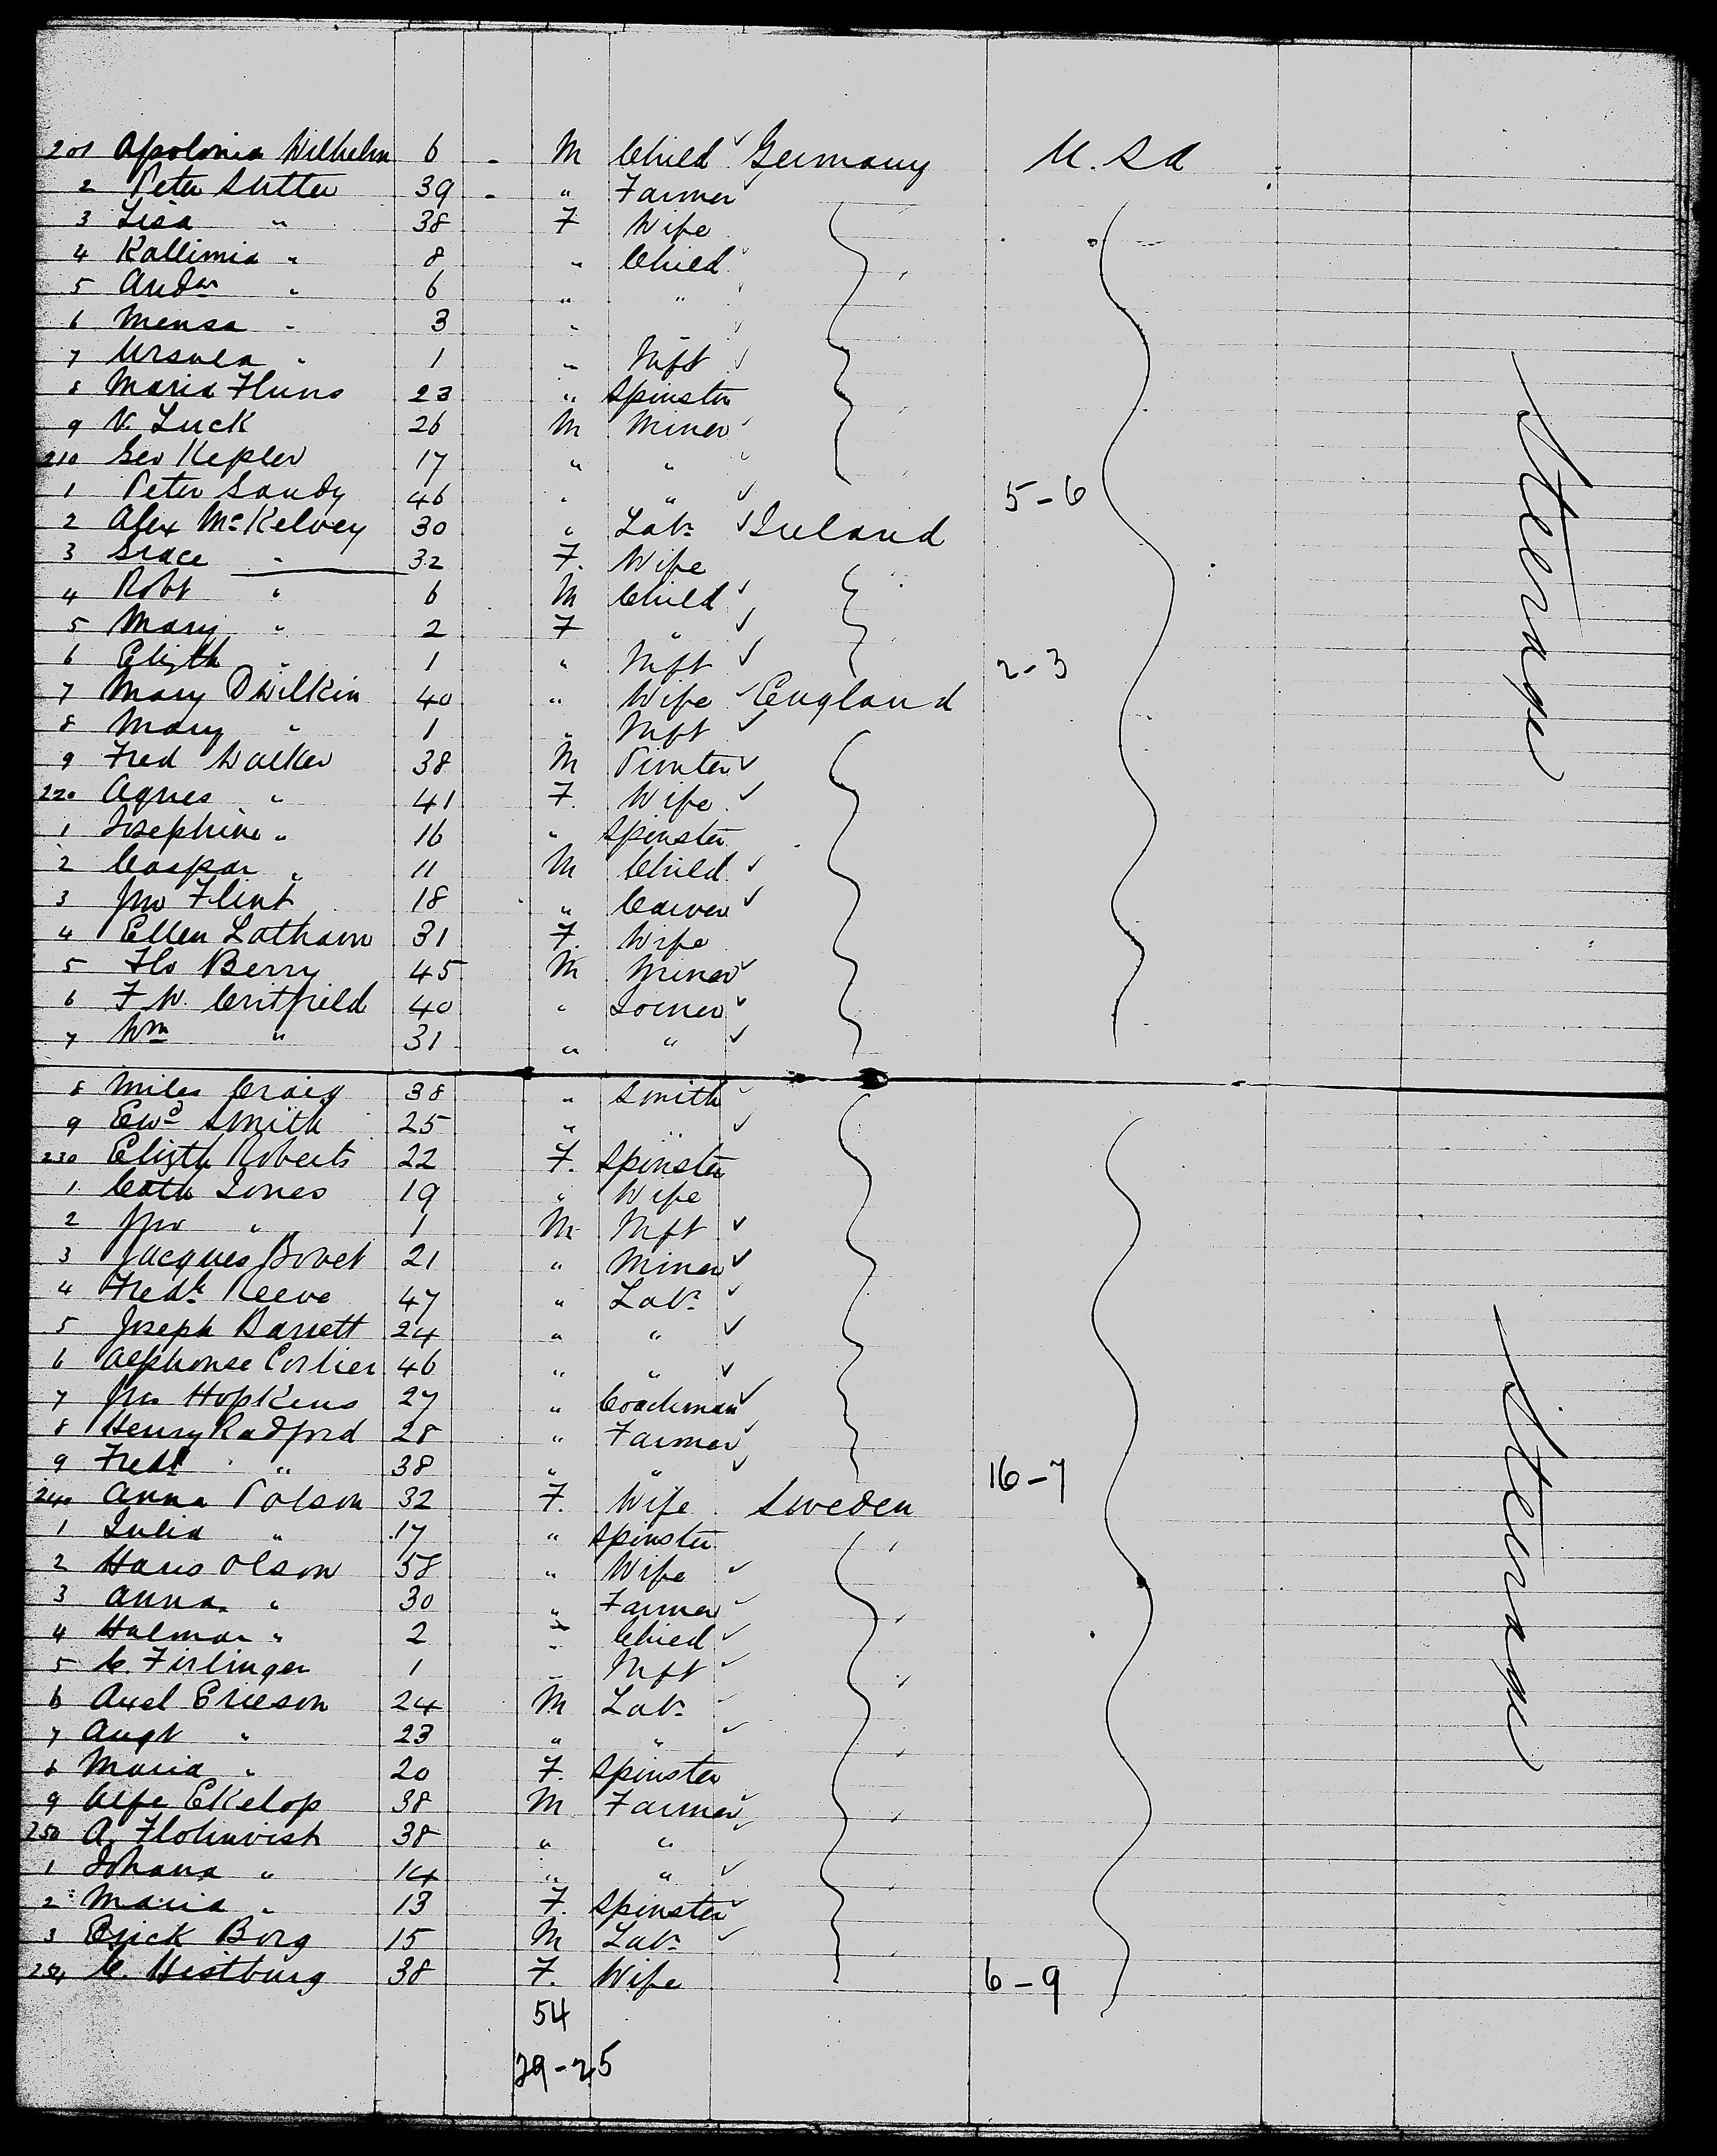 201 Apolonia Wilhelm 6 - M Child ✓ Germany U.S.A
2 Peter Sutter 39 - " Farmer
3 Lisa " 38 F Wife
4 Kallimia " 8 " Child
5 Andw " 6 " "
6 Mensa " 3 " "
7 Ursula " 1 " Inft ✓
8 Maria Fluns 23 " Spinster
9 V. Luck 26 M Miner
210 Geo Kepler 17 " "
1 Peter Sandy 46 " " ✓ 5-6
2 Alex McKelvey 30 " Labr ✓ Ireland
3 Grace " 32 F. Wife
4 Robt " 6 M Child ✓
5 Mary " 2 F " ✓
6 Elizth " 1 " Inft ✓ 2-3
7 Mary Dwilkin 40 " Wife ✓ England
8 Mary " 1 " Inft ✓
9 Fred Walker 38 M Printer ✓
220 Agnes " 41 F. Wife ✓
1 Josephine " 16 " Spinster
2 Caspar " 11 M Child ✓
3 Jno Flint 18 " Carver ✓
4 Ellen Latham 31 F. Wife
5 Tho Berry 45 M Miner ✓
6 F W. Critfield 40 " Joiner ✓
7 Wm " 31 " " ✓
Steerage
8 Miles Craig 38 " Smith ✓
9 Ewd Smith 25 " " ✓
230 Elizth Roberts 22 F. Spinster
1 Cath Jones 19 " Wife
2 Jno " 1 M Inft ✓
3 Jacques Bovet 21 " Miner ✓
4 Fredk Reeve 47 " Labr ✓
5 Joseph Barrett 24 " " ✓
6 Alphonse Corlier 46 " " ✓
7 Jno Hopkins 27 " Coachman ✓
8 Henry Radford 28 " Farmer ✓
9 Fredk " 38 " " ✓ 16-7
240 Anna Polson 32 F. Wife Sweden
1 Julia " 17 " Spinster
2 Hans Olson 58 " Wife ✓
3 Anna " 30 " Farmer ✓
4 Halmar " 2 " Child ✓
5 C. Firlinger 1 " Inft ✓
6 Axel Ericson 24 M Labr ✓
7 Augt " 23 " " ✓
8 Maria " 20 F. Spinster
9 Alfe Ekelop 38 M Farmer ✓
250 A. Floknvist 38 " "
1 Johana " 14 " " ✓
2 Maria " 13 F. Spinster ✓
3 Erick Borg 15 M Labr ✓
254 C. Histburg 38 F. Wife 6-9
Steerage
54
29-25